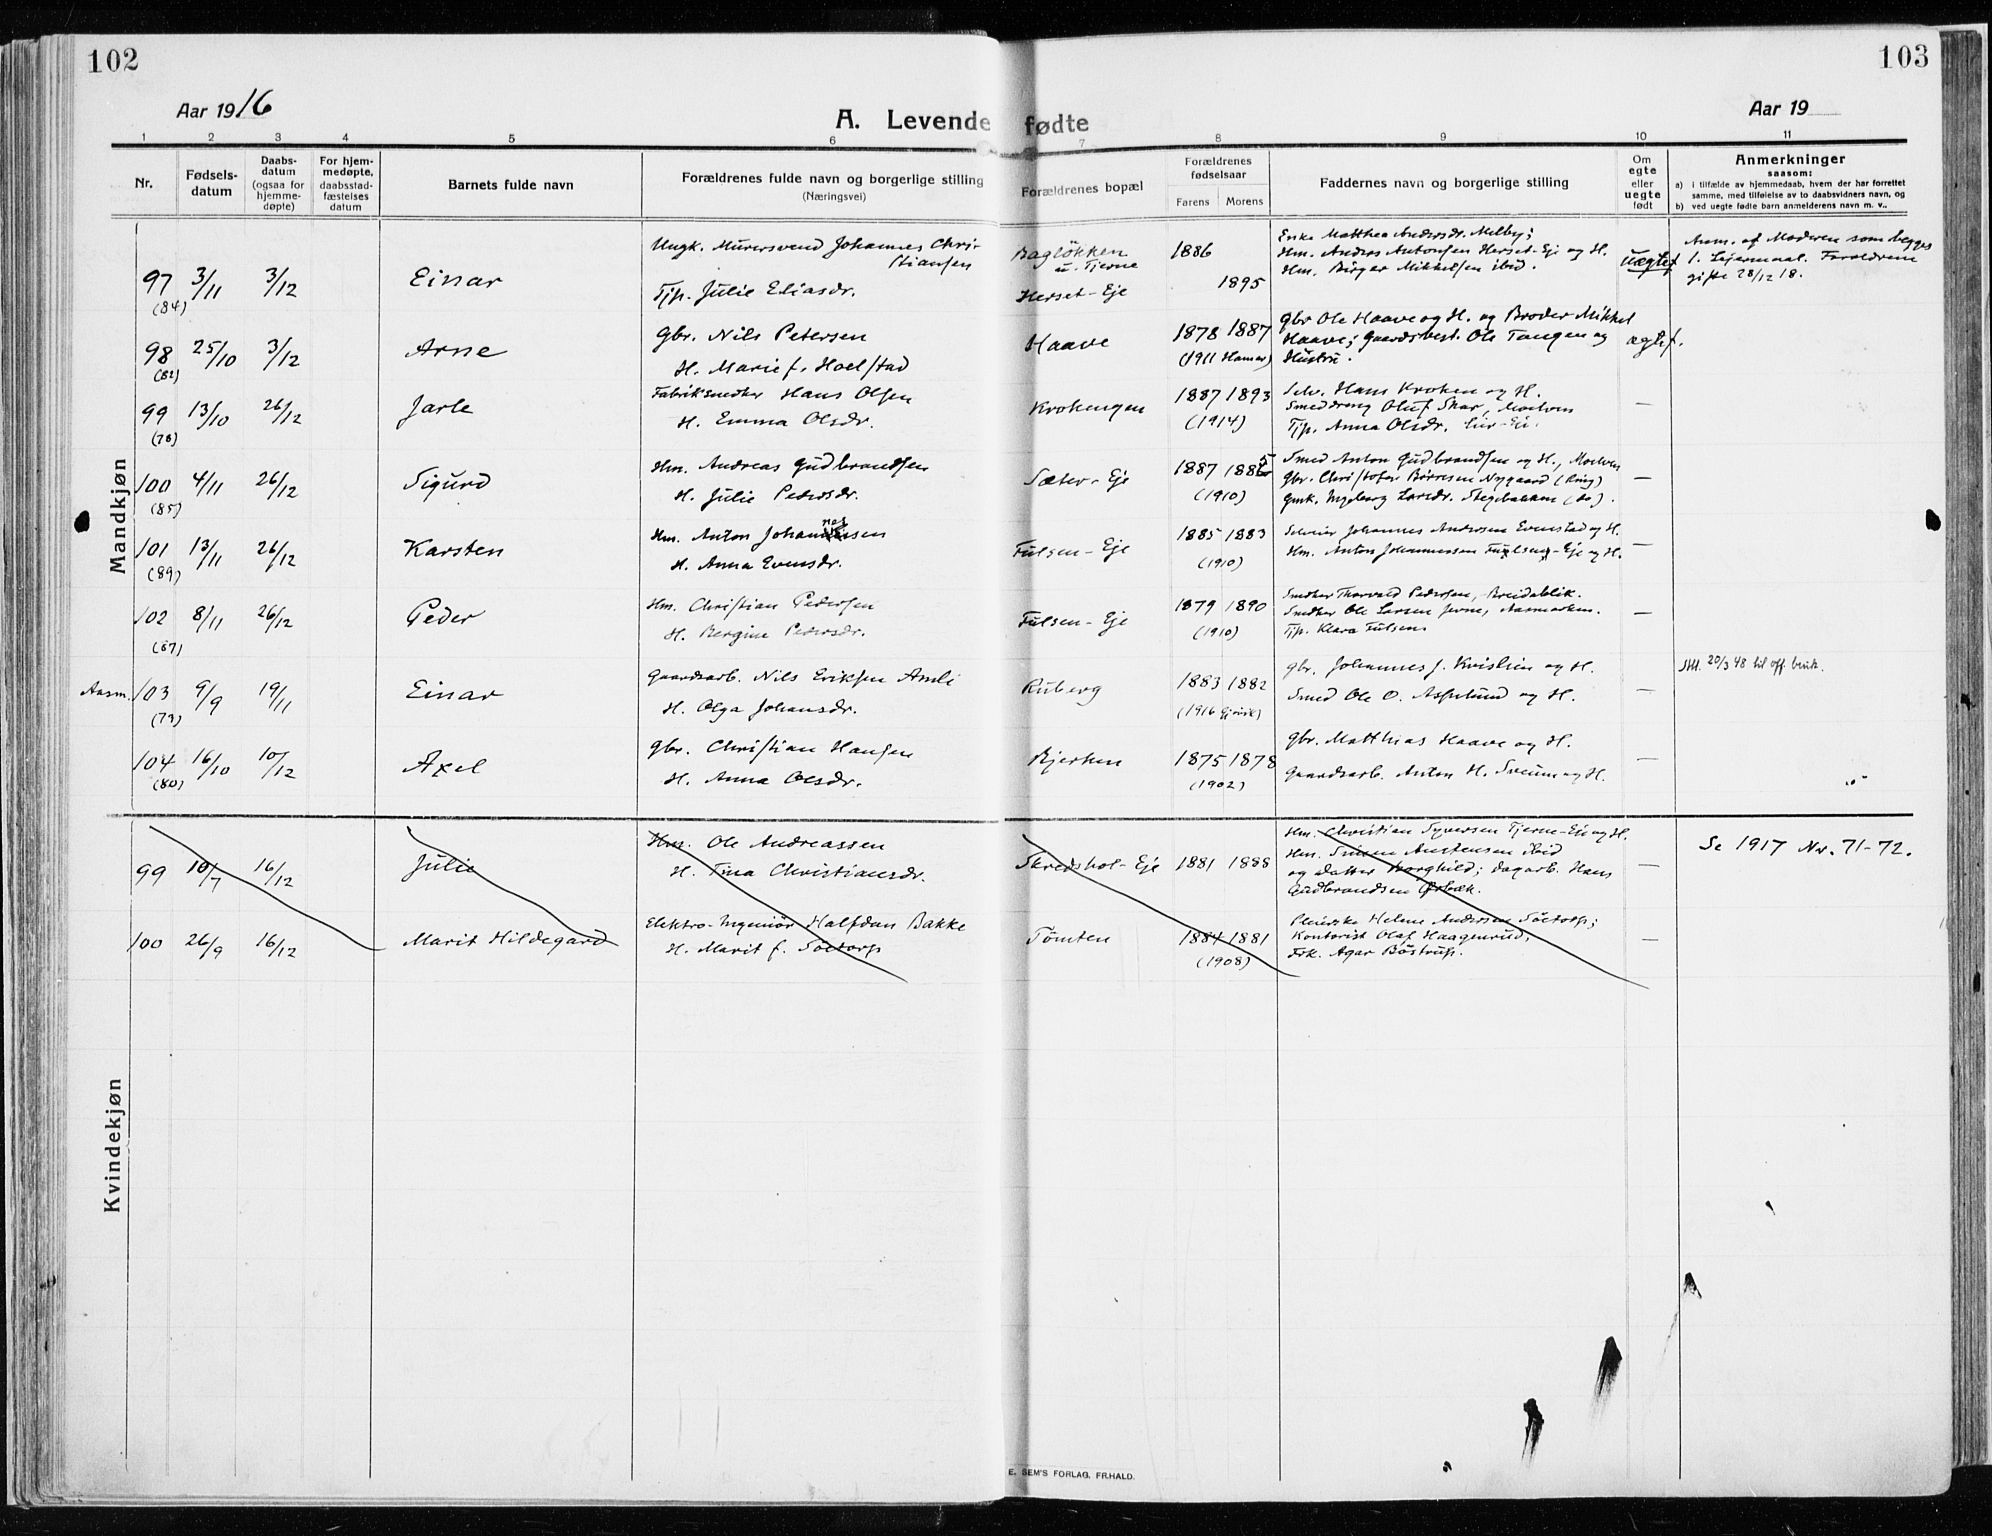 102
103
Aar 1916
A. Levende fødte
Aar 19
1 2 3 4 5 6 7 8 9 10 11
Nr.
Fødsels-
datum
Daabs-
datum
(ogsaa for
hjemme-
døpte)
For hjem-
medøpte,
daabsstad-
fæstelses
datum
Barnets fulde navn
Forældrenes fulde navn og borgerlige stilling
(Næringsvei)
Forældrenes bopæl
Forældrenes
fødselsaar
Farens Morens
Faddernes navn og borgerlige stilling
Om
egte
eller
uegte
født
Anmerkninger
saasom:
a) i tilfælde av hjemmedaab, hvem der har forrettet
samme, med tilføielse av to daabsvidners navn, og
b) ved uegte fødte barn anmelderens navn m. v..
Mandkjøn
97 3/11 3/12 Einar
(84)
Ungk. Murersvend Johannes Chri-
stiansen
Tjp. Julie Eliasdr.
Bagløkken
u. Tjerne
Herset-Eje
1886
1895
Enke Matthea Andersdr. Melby;
Hm. Anders Antonsen Herset-Eje og H.
Hm. Birger Mikkelsen ibid.
uægtef.
Anm. af Moderen som begges
1. Lejermaal. Foreldrene
gifte 28/12 18.
98 25/10 3/12 Arne
(82)
Gbr. Nils Petersen
H. Marie f. Hoelstad
Haave
1878 1887
(1911 Hamar)
Gbr Ole Haave og H. og Broder Mikkel
Haave; Gaardbest. Ole Tangen og
Hustru.
ægtef.
99 13/10 26/12 Jarle
(78)
Fabriksnedker Hans Olsen
H. Emma Olsdr.
Krokengen
1887 1893
(1914)
Selv. Hans Kroken og H.
Smeddreng Oluf Skar, Moelven
Tjp. Anna Olsdr. Lier-Eje.
—
100 4/11 26/12 Sigurd
(85)
Hm. Andreas Gudbrandsen
H. Julie Pedersdr.
Sæter-Eje
1887 1885
(1910)
Smed Anton Gudbrandsen og H., Moelven
Gbr. Christofer Børresen Nygaard (Ring)
Gmk. Ingeborg Larsdr. Stegebakken (do).
—
101 13/11 26/12 Karsten
(89)
Hm. Anton Johannessen
H. Anna Evensdr.
Fulsen-Eje
1885 1883
(1910)
Selveier Johannes Andersen Evenstad og H.
Hm. Anton Johannessen Fulsen-Eje og H.
—
102 8/11 26/12 Peder
(87)
Hm. Christian Pedersen
H. Bergine Pedersdr.
Fulsen-Eje
1879 1890
(1910)
Snedker Thorvald Pedersen, Breidablik.
Snedker Ole Larsen Jevne, Aasmarken.
Tjp. Klara Fulsen
—
Aasm. 103 9/9 19/11 Einar
(73)
Gaardsarb. Nils Eriksen Amli
H. Olga Johansdr.
Ruberg
1883 1882
(1916 Gjøvik)
Gbr. Johannes J. Kvislien og H.
Smed Ole O. Asplund og H.
—
Att. 20/3 48 til off. bruk.
104 16/10 10/12 Axel
(80)
Gbr. Christian Hansen
H. Anna Olsdr.
Bjerken
1875 1878
(1902)
Gbr. Matthias Haave og H.
Gaardsarb. Anton H. Sveum og H.
—
Kvindekjøn
99 10/7 16/12 Julie
Hm. Ole Andreassen
H. Tina Christiansdr.
Skredshol-Eje
1881 1888
Hm. Christian Syversen Tjerne-Eje og H.
Hm. Simen Austensen ibid
og Datter Borghild; Dagarb. Hans
Gudbrandsen Ørbæk.
—
Se 1917 Nr. 71-72.
100 26/9 16/12 Marit Hildegard
Elektro-Ingeniør Halfdan Bakke
H. Marit f. Sætorp
Tømten
1884 1881
(1908)
Helene Andersen Sætorp;
Kontorist Olaf Haagenrud,
Frk. Agar Bøstrup.
—
E. SEM'S FORLAG, FR.HALD.